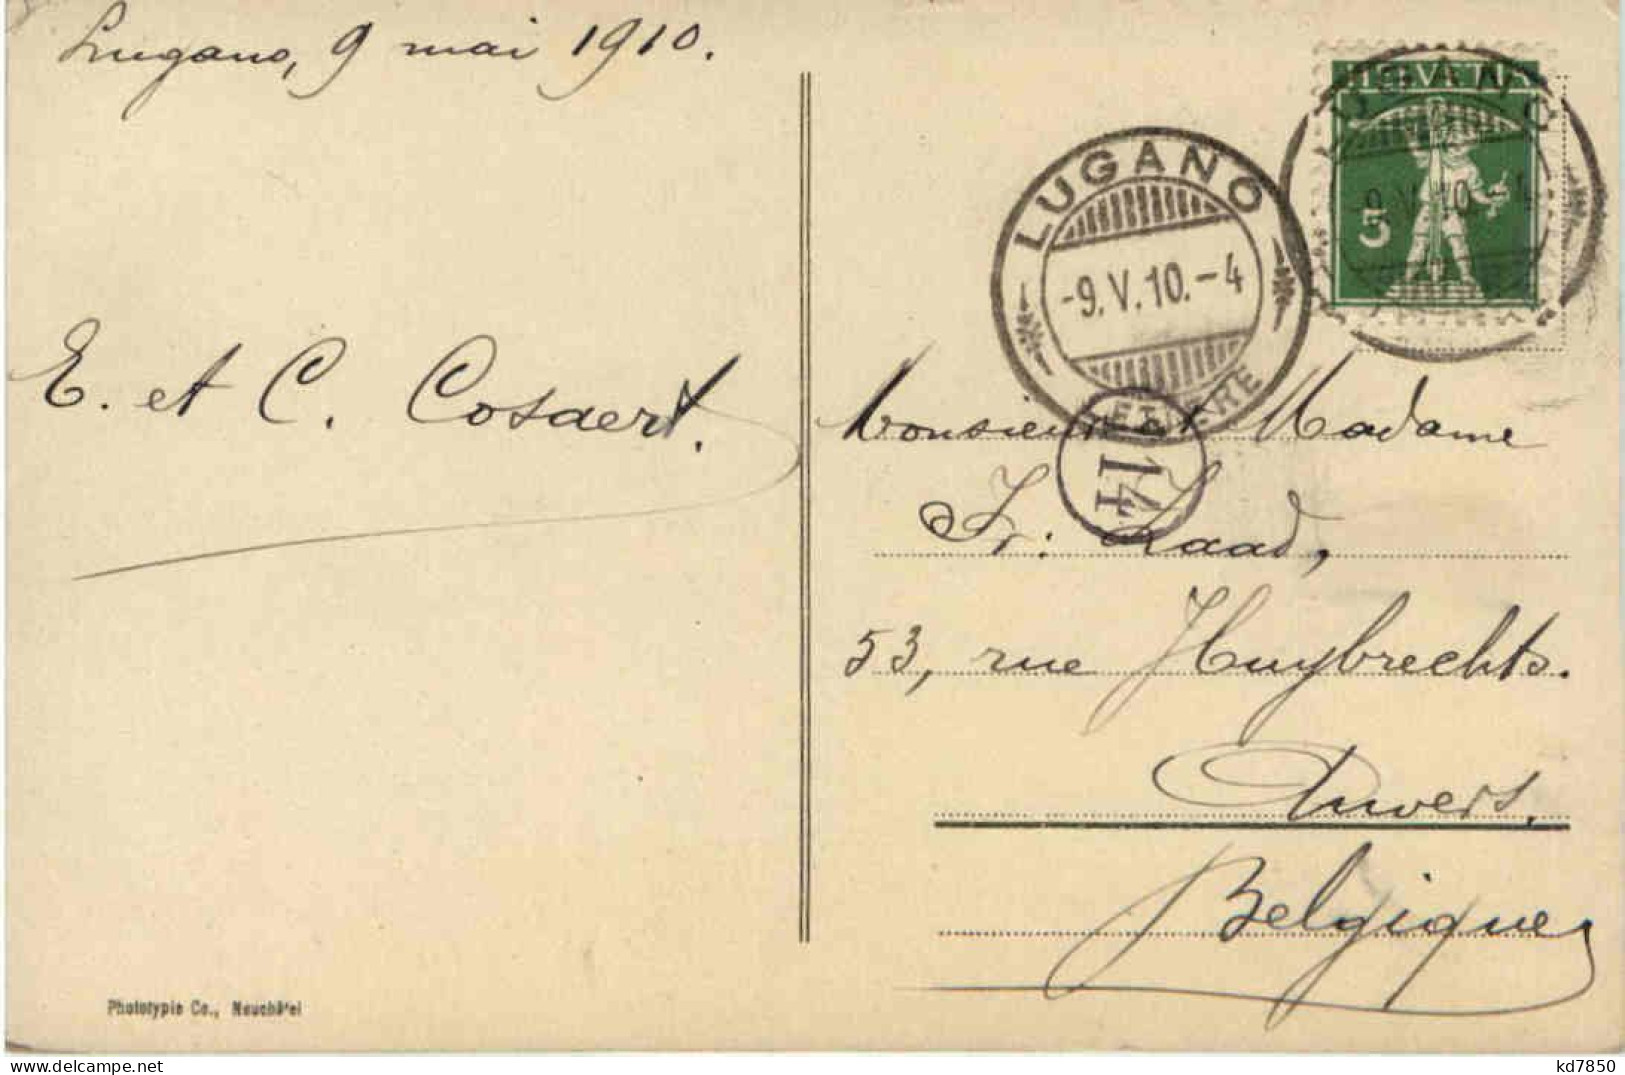 Lugano, 9 mai 1910.
E. et C. Cosaert.
Phototypie Co., Neuchâtel
HELVETIA
5
LUGANO
9.V.10.-4
LUGANO
-9.V.10.-4
LETTERE
14
Monsieur et Madame
Fr. Laad,
53, rue Huybrechts.
Anvers.
Belgique
kd7850